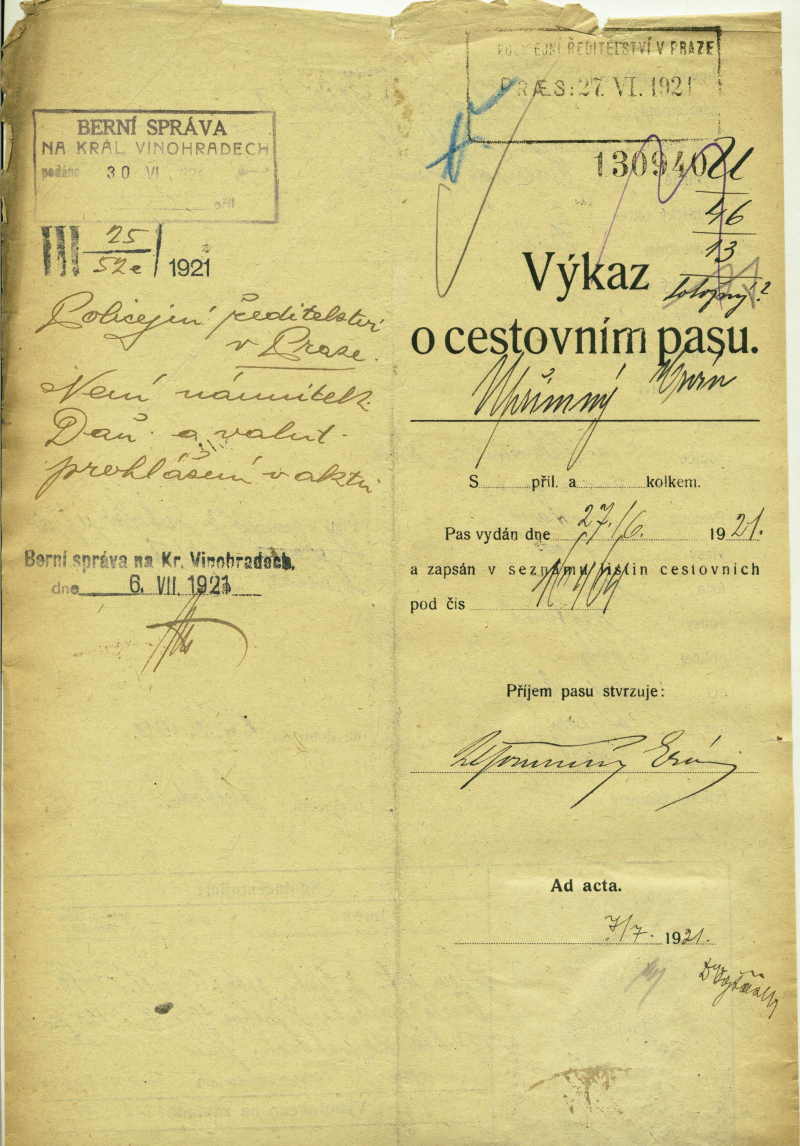 BERNÍ SPRÁVA
NA KRÁL. VINOHRADECH
podáno 30 VI
příl
III 25/52e / 1921
Policejní ředitelství
v Praze.
Není námitek.
Daň. a valut.
prohlášení v aktu
Berní správa na Kr. Vinohradech.
dne 6. VII. 1921
POLICEJNÍ ŘEDITELSTVÍ V PRAZE
PRÆS: 27. VI. 1921
130940
21
46
13
totožný?
Výkaz
o cestovním pasu.
Upřimný
S příl. a kolkem.
Pas vydán dne 27./6. 1921.
a zapsán v seznamu listin cestovních
pod čís
Příjem pasu stvrzuje:
Upřimný
Ad acta.
7/7. 1921.